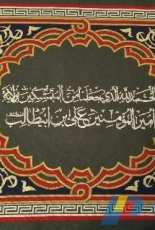 الحمد لله الذي جعلنا من المتمسکین بولایة
امیر المؤمنین علی بن ابیطالب